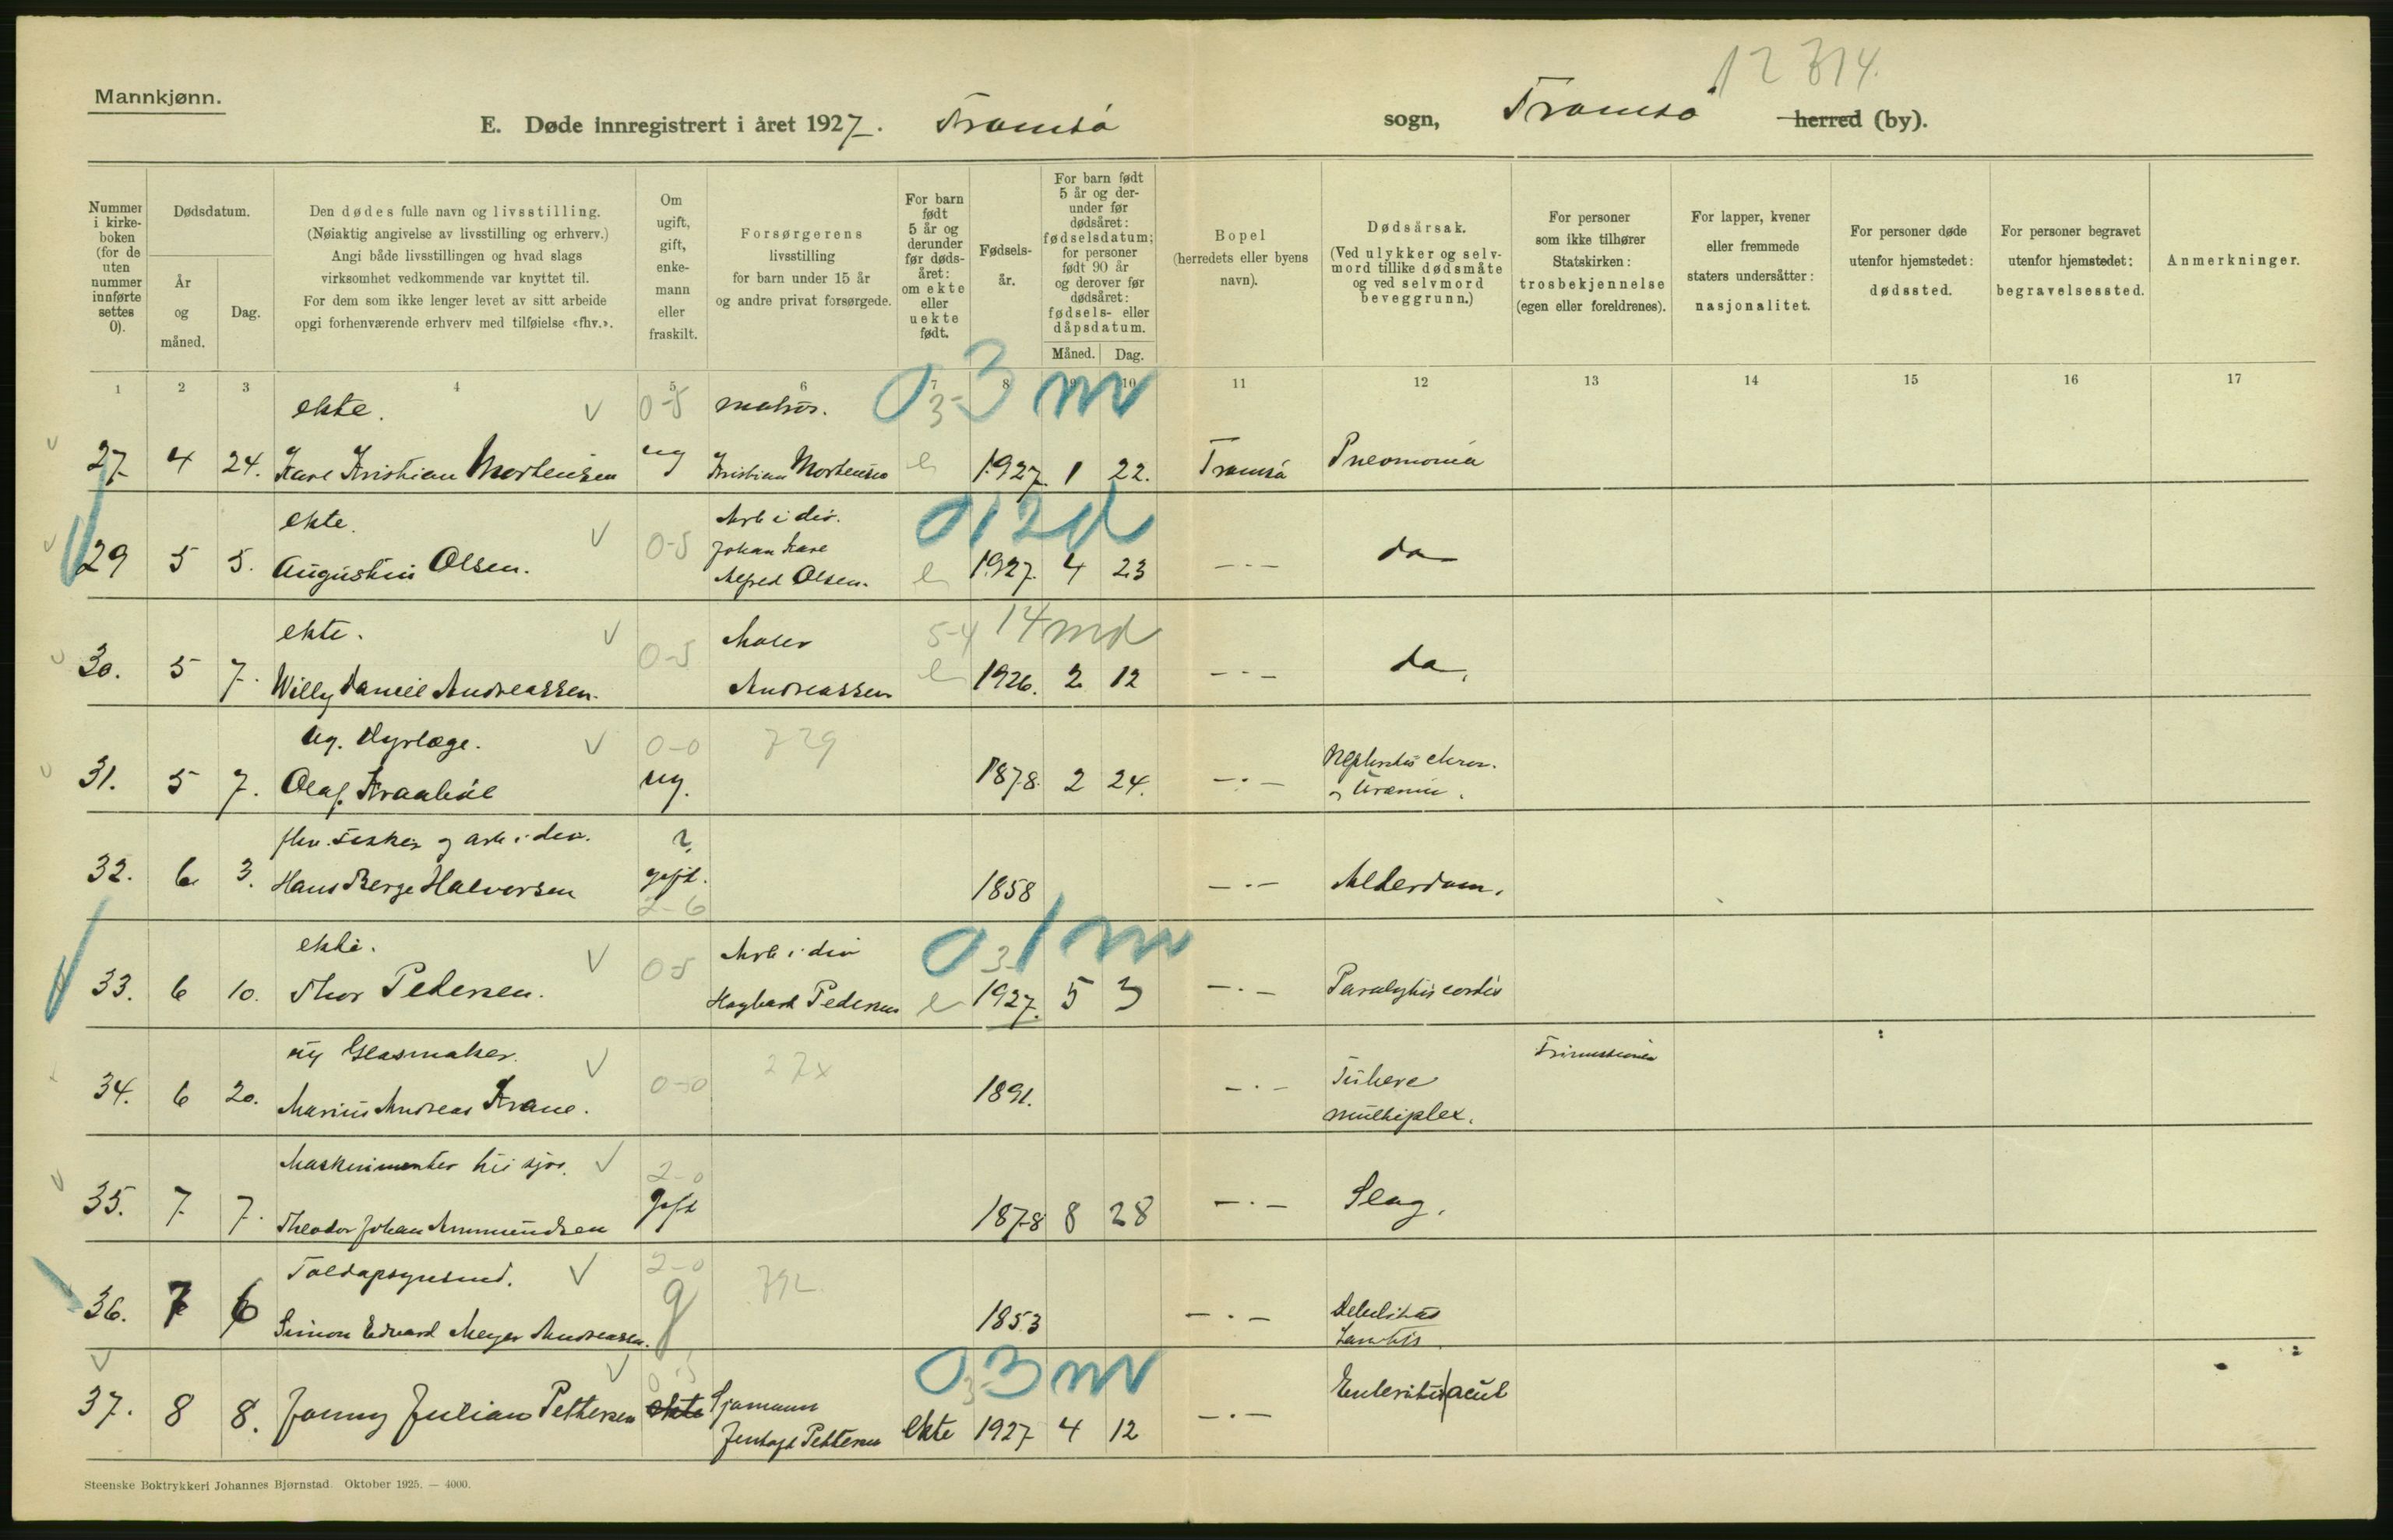 12 314.
Mannkjønn.
E. Døde innregistrert i året 1927. Tromsø sogn, Tromsø herred (by).
Nummer i kirkeboken (for de uten nummer innførte settes 0).
Dødsdatum.
År og måned.
Dag.
Den dødes fulle navn og livsstilling.
(Nøiaktig angivelse av livsstilling og erhverv.)
Angi både livsstillingen og hvad slags
virksomhet vedkommende var knyttet til.
For dem som ikke lenger levet av sitt arbeide
opgi forhenværende erhverv med tilføielse «fhv.».
Om ugift, gift, enkemann eller fraskilt.
Forsørgerens
livsstilling
for barn under 15 år
og andre privat forsørgede.
For barn født 5 år og derunder før dødsåret: om ekte eller uekte født.
Fødselsår.
For barn født 5 år og derunder før dødsåret: fødselsdatum; for personer født 90 år og derover før dødsåret: fødsels- eller dåpsdatum.
Måned. Dag.
Bopel
(herredets eller byens navn).
Dødsårsak.
(Ved ulykker og selvmord tillike dødsmåte og ved selvmord beveggrunn.)
For personer som ikke tilhører Statskirken: trosbekjennelse (egen eller foreldrenes).
For lapper, kvener eller fremmede staters undersåtter: nasjonalitet.
For personer døde utenfor hjemstedet: dødssted.
For personer begravet utenfor hjemstedet: begravelsessted.
Anmerkninger.
1 2 3 4 5 6 7 8 9 10 11 12 13 14 15 16 17
ekte. 0-5 matros. 0 3 m
27 4 24. Kåre Kristian Mortensen ug Kristian Mortensen e 1927. 1 22. Tromsø Pneomonia
ekte. Arb i div. 0 12 d
29 5 5. Augustin Olsen. 0-5 Johan Kåre Alfred Olsen. e 1927. 4 23 —·— do
ekte. Maler 5-4 14 md
30. 5 7. Willy Daniel Andreassen. 0-5 Andreassen e 1926. 2 12 —·— do.
Ug. Dyrlæge. 0-0 729
31. 5 7. Olaf Kraabøl ug. 1878. 2 24. —·— Nephritis chron.
Uræmi.
fhv. fisker og arb i div. 2
32. 6 3. Hans Berge Halvorsen gift. 2-6 1858 —·— Alderdom.
ekte. Arb i div 0 1 m
33. 6 10. Thor Pedersen. 0-5 Hagbart Pedersen e 1927. 5 3 —·— Paralysis cordis
ug Glasmaker. 27x Frimissionen
34. 6 20. Marius Andreas Krane. 0-0 1891. —·— Tuberc
multiplex.
Maskinmester til sjøs. 2-0
35. 7 7. Theodor Johan Ammundsen Gift 1878 8 28 —·— Slag.
Toldopsynsmd. 2-0 792
36. 7 6 Simon Edvard Meyer Andreassen. g 1853 —·— Debilitas
0 3 m
37. 8 8. Jonny Julian Pettersen ekte Sjømann
Jentoft Pettersen ekte 1927 4 12 —·— Enteritis acut
Steenske Boktrykkeri Johannes Bjørnstad. Oktober 1925. — 4000.